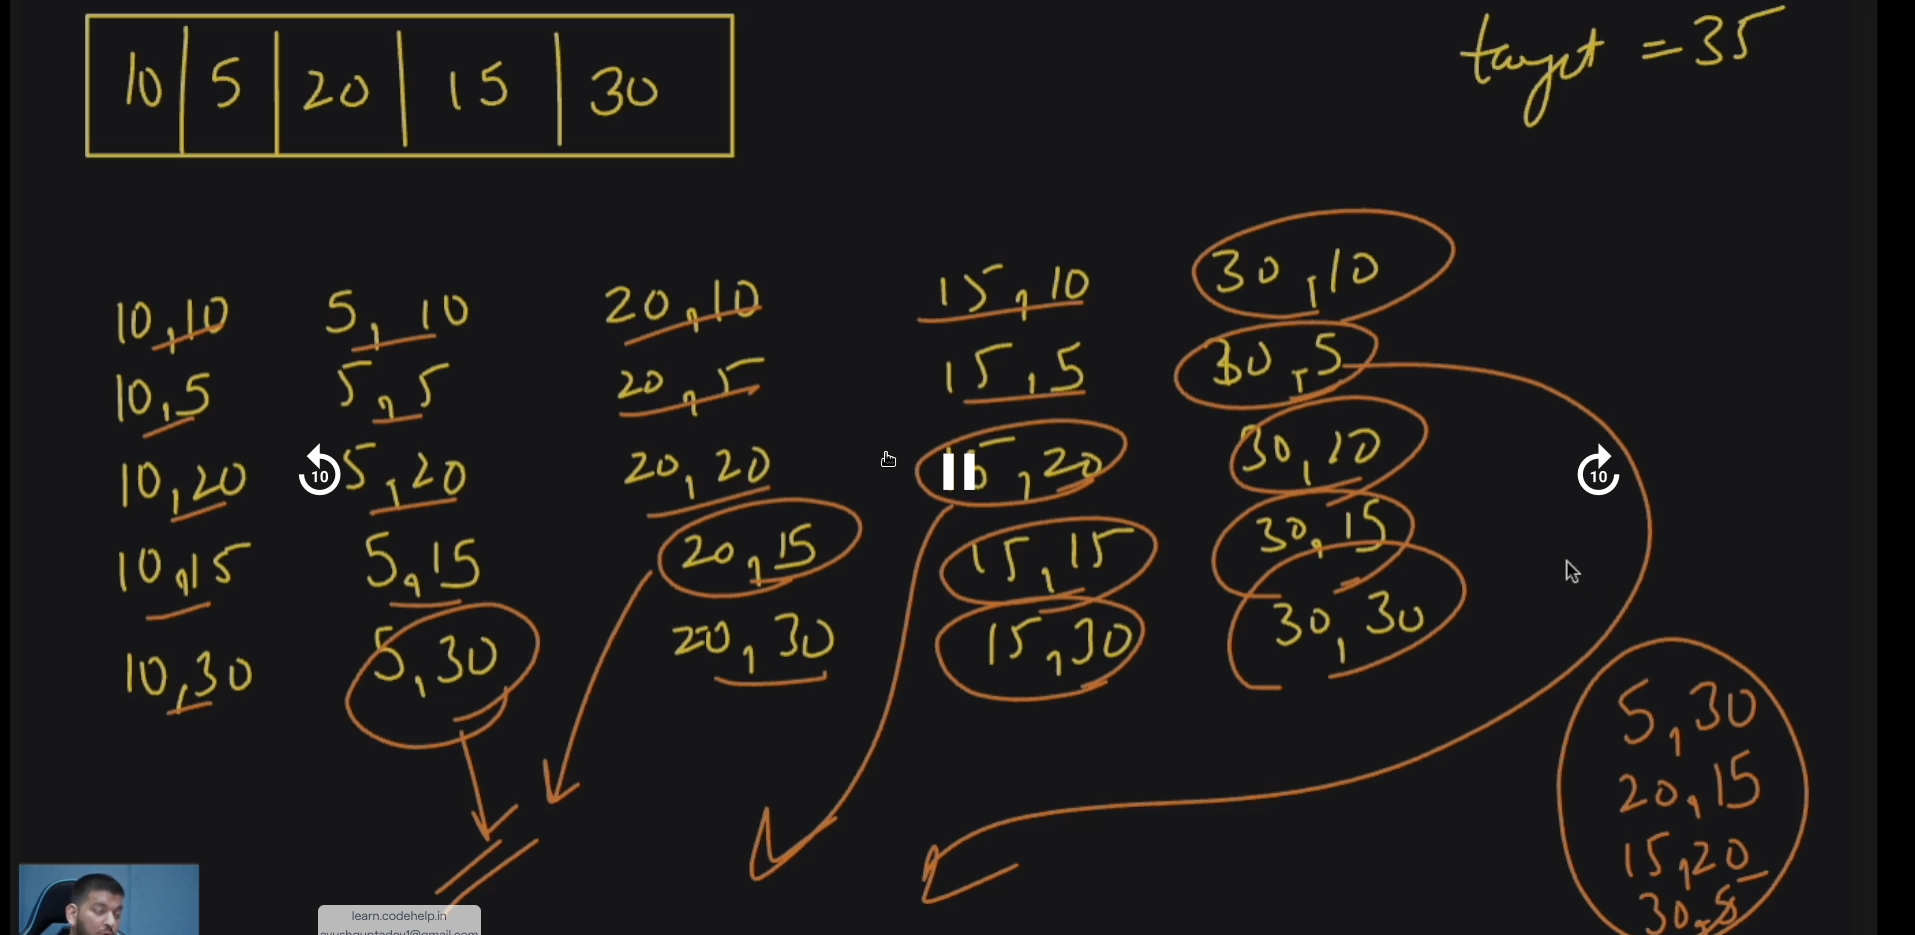 10 5 20 15 30
target = 35
10,10 5,10 20,10 15,10 30,10
10,5 5,5 20,5 15,5 30,5
10,20 5,20 20,20 15,20 30,20
10,15 5,15 20,15 15,15 30,15
10,30 5,30 20,30 15,30 30,30
10
10
5,30
20,15
15,20
30,5
learn.codehelp.in